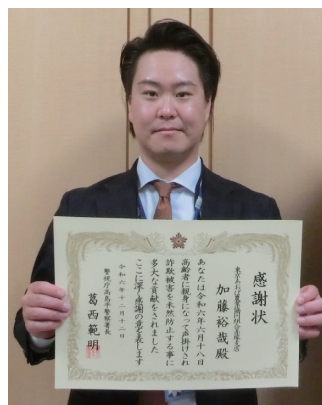 感謝状
加藤裕哉殿
あなたは令和六年六月十八日
高齢者に親身になって声掛けされ
詐欺被害を未然防止する事に
多大な貢献をされました
ここに深く感謝の意を表します
令和六年十二月十二日
警視庁高島平警察署長
葛西範明